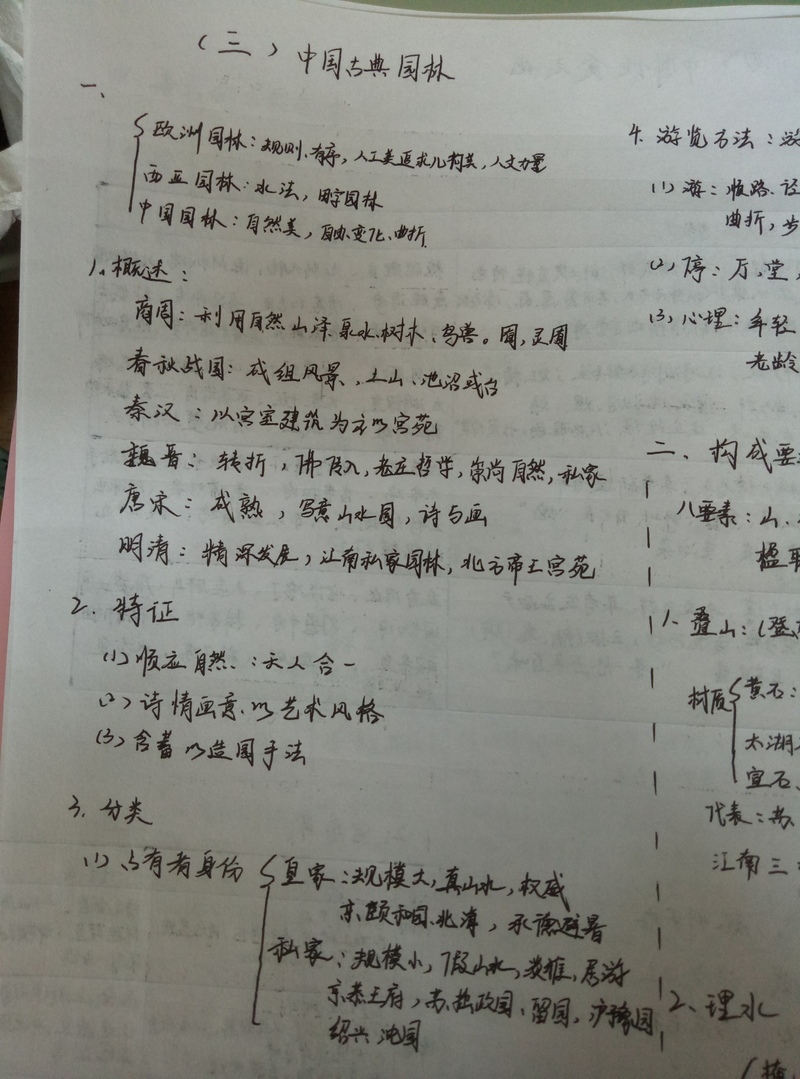 （三）中国古典园林
一、
欧洲园林：规则、有序，人工美追求几何美，人文力量
西亚园林：水法，田字园林
中国园林：自然美，自由、变化、曲折
1、概述：
商周：利用自然山泽、泉水、树木、鸟兽。囿，灵囿
春秋战国：成组风景，土山、池沼或台
秦汉：以宫室建筑为主以宫苑
魏晋：转折，佛 入，老庄哲学，崇尚自然，私家
唐宋：成熟，写意山水园，诗与画
明清：精深发展，江南私家园林，北方帝王宫苑
2. 特证
(1) 顺应自然：天人合一
(2) 诗情画意以艺术风格
(3) 含蓄以造园手法
3. 分类
(1) 占有者身份
皇家：规模大，真山水，权威
京、颐和园、北海，承德避暑
私家：规模小，假山水，淡雅，居游
京恭王府，苏、拙政园、留园，沪豫园
绍兴沈园
4. 游览方法：游
(1) 游：顺路、径
曲折，步
(2) 停：厅，堂，
(3) 心理：年轻
老龄
二、构成要
八要素：山、
楹联
1. 叠山：
材质
黄石：
太湖
宣石、
代表：苏、
江南三
2、理水